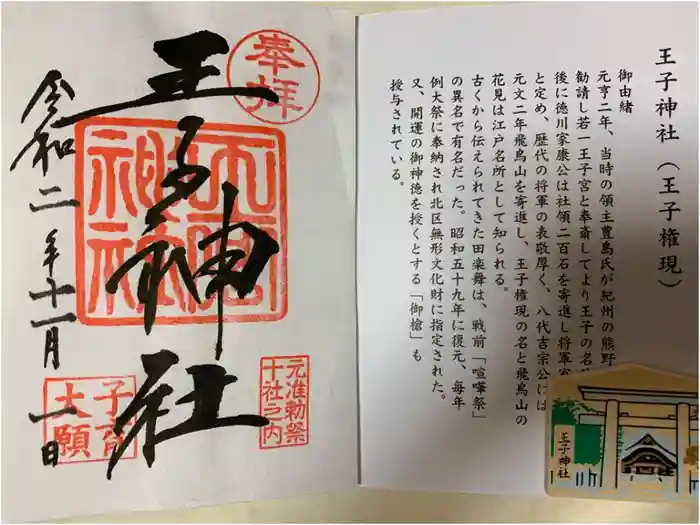 王子神社（王子権現）
御由緒
元亨二年、当時の領主豊島氏が紀州の熊野
勧請し若一王子宮と奉斎してより王子の名
後に徳川家康公は社領二百石を寄進し将軍
と定め、歴代の将軍の表敬厚く、八代吉宗公には
元文二年飛鳥山を寄進し、王子権現の名と飛鳥山の
花見は江戸名所として知られる。
古くから伝えられてきた田楽舞は、戦前「喧嘩祭」
の異名で有名だった。昭和五十九年に復元、毎年
例大祭に奉納され北区無形文化財に指定された。
又、開運の御神徳を授くとする「御槍」も
授与されている。
王子神社
奉拝
王子神社
元准勅祭
十社之内
令和二年十一月一日
子育
大願